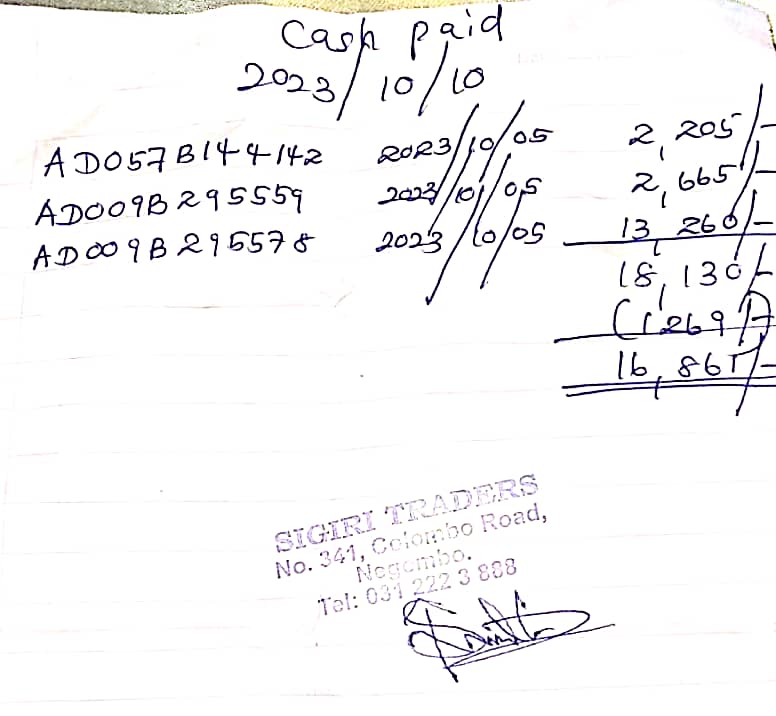 Cash paid
2023/10/10
AD057B144142 2023/10/05 2,205/-
AD009B295559 2023/10/05 2,665/-
AD009B295578 2023/10/05 13,260/-
18,130/-
(1,269/-)
16,861/-
SIGIRI TRADERS
No. 341, Colombo Road,
Negombo.
Tel: 031 222 3 888